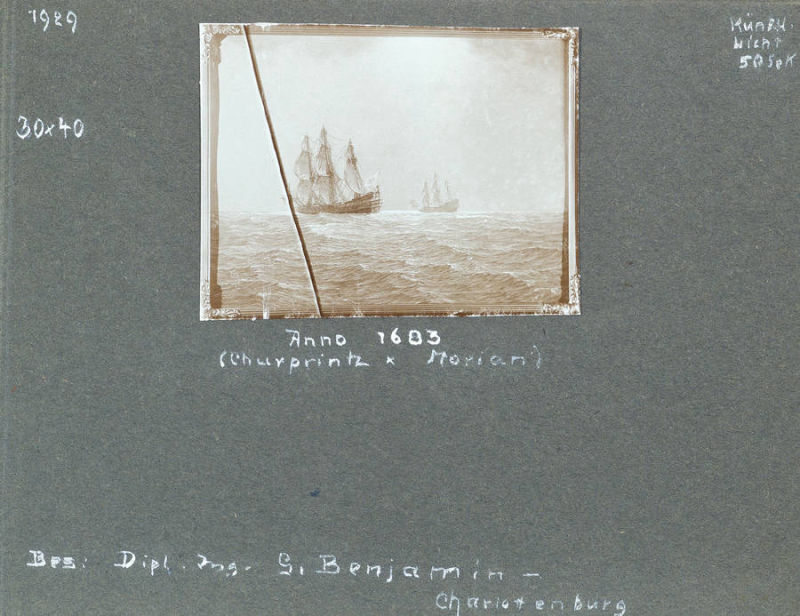 1929
Künstl.
Licht
50 Sek
30x40
Anno 1683
(Churprintz x Morian)
Bes: Dipl. Ing. G. Benjamin –
Charlotenburg